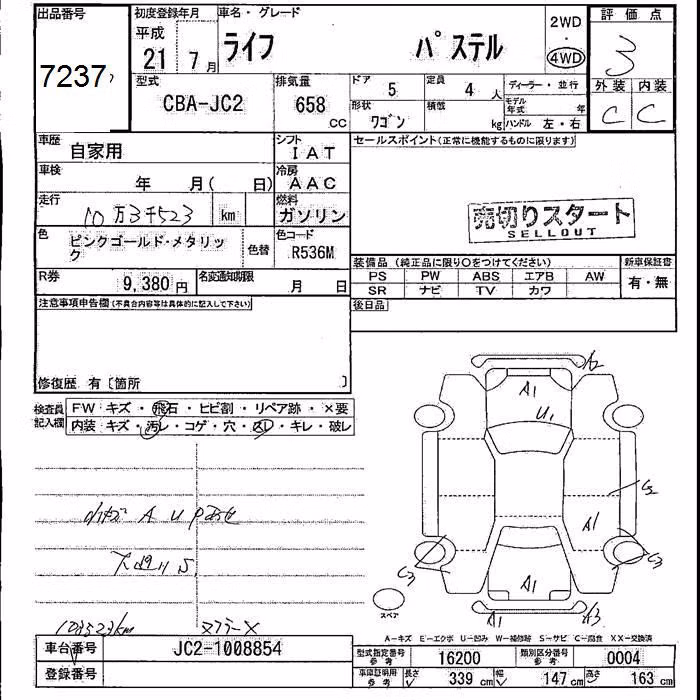 出品番号 初度登録年月 車名・グレード 2WD 評価点
7237 平成 21 7月 ライフ パステル ・ 4WD 3
型式 CBA-JC2 排気量 658 CC ドア 5 定員 4 人 ディーラー・並行 外装 内装
形状 ワゴン 積載 kg モデル年式 年 ハンドル 左・右 C C
車歴 自家用 シフト IAT セールスポイント(正常に機能するものに限ります)
車検 年 月( 日) 冷房 AAC
走行 10万3千523 km 燃料 ガソリン
売切りスタート
SELLOUT
色 ピンクゴールド・メタリック 色替 色コード R536M
装備品(純正品に限り○をつけてください) 新車保証書
PS PW ABS エアB AW 有・無
SR ナビ TV カワ
R券 9,380円 名変通知期限 月 日
後日品
注意事項申告欄(不具合内容等は具体的に記入して下さい)
修復歴 有〔箇所 〕
検査員記入欄 FW キズ・飛石・ヒビ割・リペア跡・×要
内装 キズ・汚レ・コゲ・穴・スレ・キレ・破レ
A2
A1
U1
C2
A1
C3 C3
A1
A1 A3
スペア
小キズ A U P
下廻りS
103523km マフラーX
A-キズ E-エクボ U-凹み W-補修跡 S-サビ C-腐食 XX-交換済
車台番号 JC2-1008854 型式指定番号 参考 16200 類別区分番号 参考 0004
登録番号 車庫証明用 参考 長さ 339 cm 幅 147 cm 高さ 163 cm